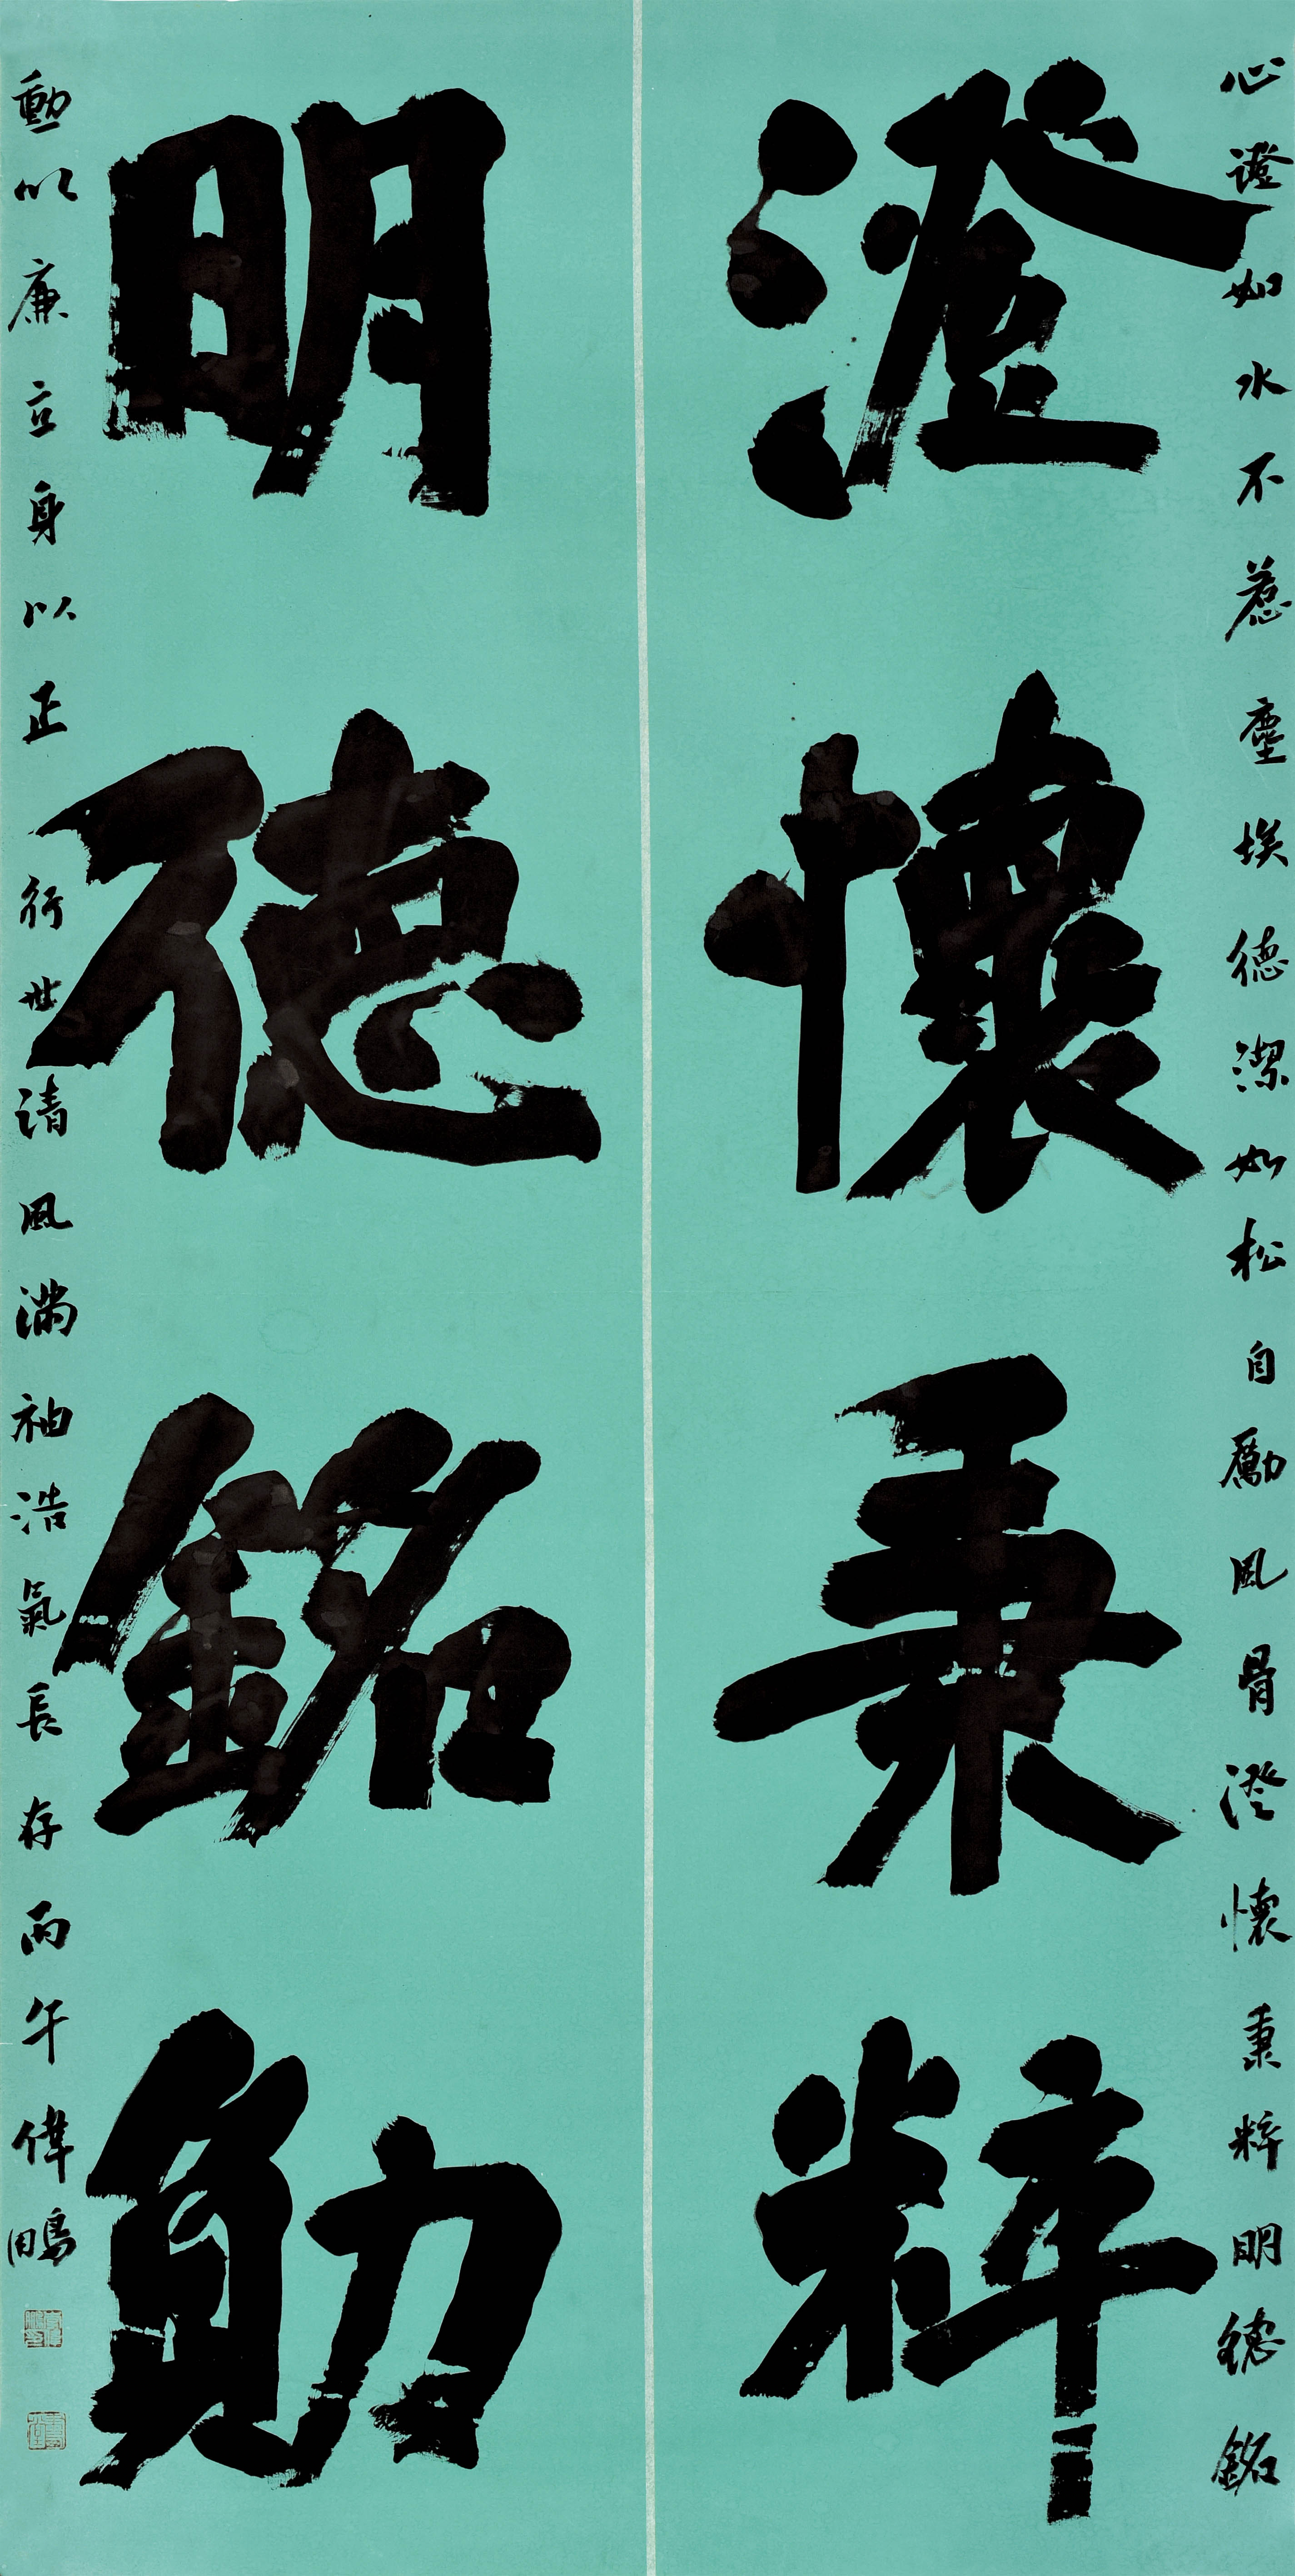 澄懷秉粹
明德銘勛
心澄如水不惹塵埃德潔如松自勵風骨澄懷秉粹明德銘
勳以廉立身以正行世清風滿袖浩氣長存丙午偉鵬